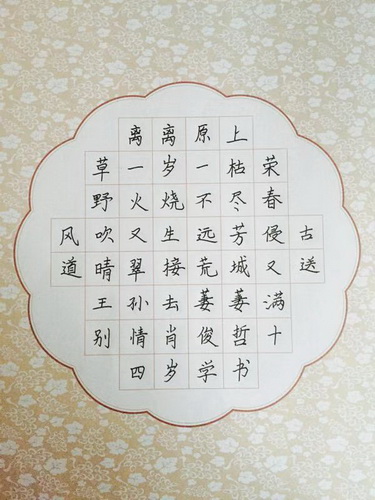 离离原上
草一岁一枯荣
野火烧不尽春
风吹又生远芳侵古
道晴翠接荒城又送
王孙去萋萋满
别情肖俊哲十
四岁学书